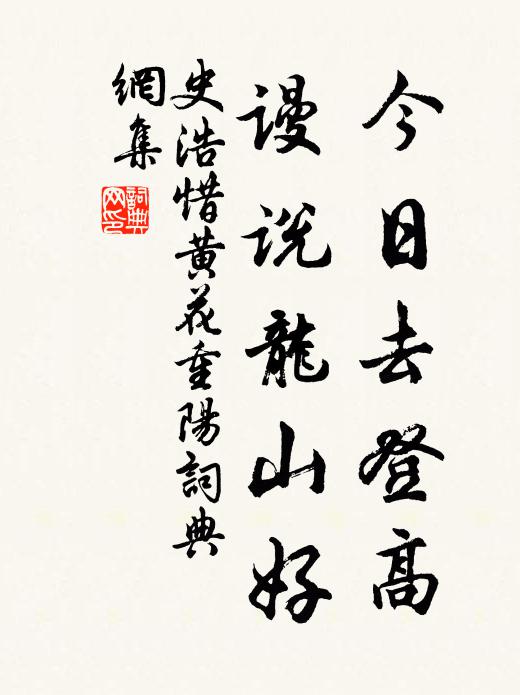 今日去登高
謾説龍山好
史浩惜黄花重陽詞典
網集
詞典
网印